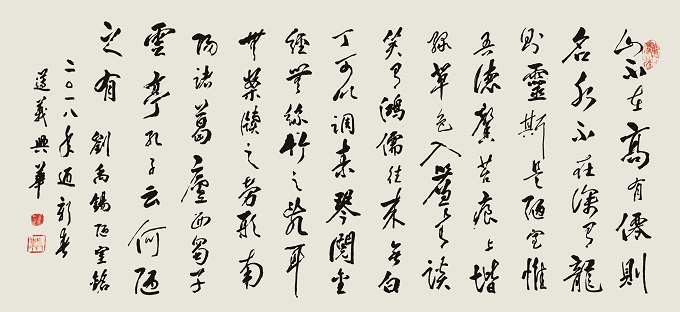 山不在高有僊則
名水不在深有龍
則靈斯是陋室惟
吾德馨苔痕上堦
綠草色入簾青談
笑有鴻儒往來無白
丁可以調素琴閱金
經無絲竹之亂耳
無案牘之勞形南
陽諸葛廬西蜀子
雲亭孔子云何陋
之有 劉禹錫陋室銘
二〇一八年迎新春
義興華